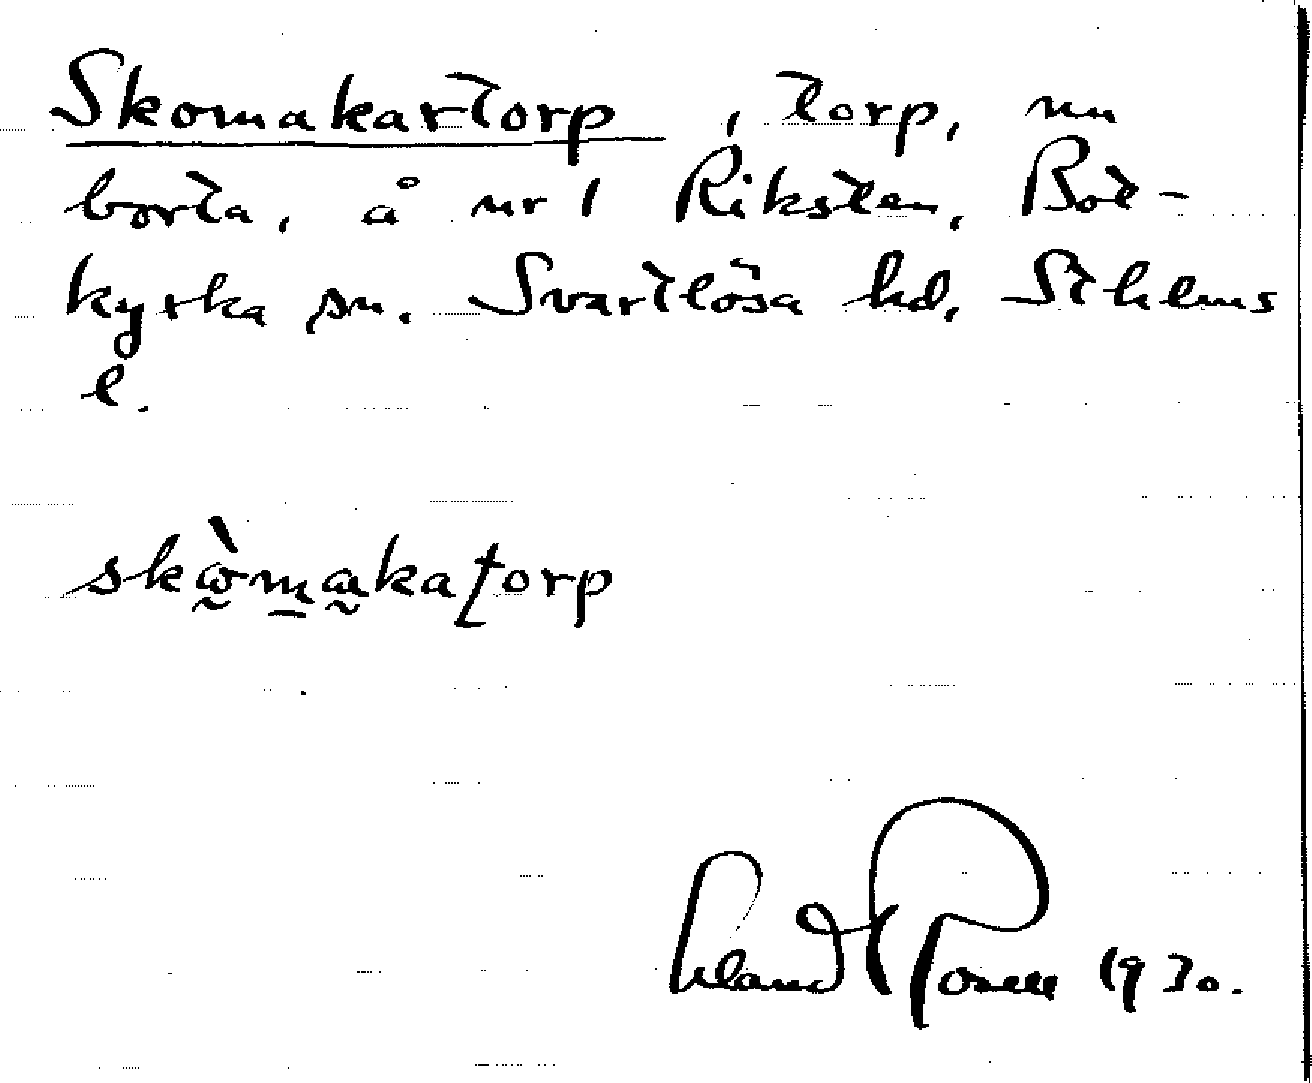 Skomakartorp, torp, nu
borta, å nr 1 Riksten, Bot-
kyrka sn. Svartlösa hd, Sthlms
l.
skò̰m̠a̰kaʈorp
Erland Rosell 1930.